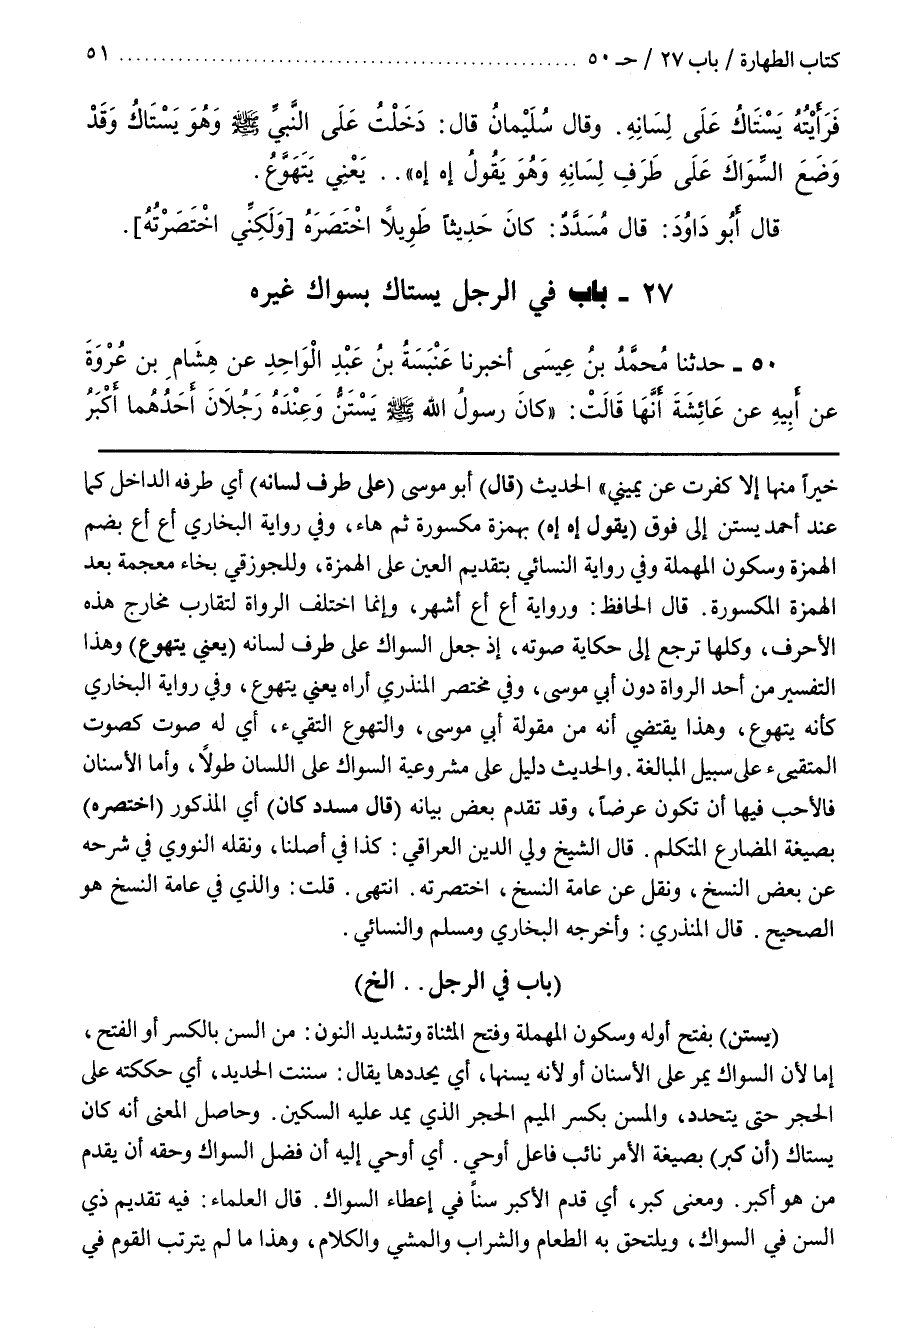 كتاب الطهارة / باب ٢٧ / حـ ٥٠ ................................................ ٥١
فَرَأَيْتُهُ يَسْتَاكُ عَلَى لِسَانِهِ. وقال سُلَيْمانُ قال: دَخَلْتُ عَلَى النَّبِيِّ ﷺ وَهُوَ يَسْتَاكُ وَقَدْ
وَضَعَ السِّوَاكَ عَلَى طَرَفِ لِسَانِهِ وَهُوَ يَقُولُ إه إه».. يَعْنِي يَتَهَوَّعُ.
قال أَبُو دَاوُدَ: قال مُسَدَّدٌ: كانَ حَدِيثاً طَوِيلًا اخْتَصَرَهُ [وَلَكِنِّي اخْتَصَرْتُهُ].
٢٧ ـ باب في الرجل يستاك بسواك غيره
٥٠ ـ حدثنا مُحمَّدُ بنُ عِيسَى أخبرنا عَنْبَسَةُ بنُ عَبْدِ الْوَاحِدِ عن هِشَامِ بن عُرْوَةَ
عن أَبِيهِ عن عَائِشَةَ أَنَّهَا قَالَتْ: «كانَ رسولُ الله ﷺ يَسْتَنُّ وَعِنْدَهُ رَجُلَانَ أَحَدُهُما أَكْبَرُ
خيراً منها إلا كفرت عن يميني» الحديث (قال) أبو موسى (على طرف لسانه) أي طرفه الداخل كما
عند أحمد يستن إلى فوق (يقول إه إه) بهمزة مكسورة ثم هاء، وفي رواية البخاري أع أع بضم
الهمزة وسكون المهملة وفي رواية النسائي بتقديم العين على الهمزة، وللجوزقي بخاء معجمة بعد
الهمزة المكسورة. قال الحافظ: ورواية أع أع أشهر، وإنما اختلف الرواة لتقارب مخارج هذه
الأحرف، وكلها ترجع إلى حكاية صوته، إذ جعل السواك على طرف لسانه (يعني يتهوع) وهذا
التفسير من أحد الرواة دون أبي موسى، وفي مختصر المنذري أراه يعني يتهوع، وفي رواية البخاري
كأنه يتهوع، وهذا يقتضي أنه من مقولة أبي موسى، والتهوع التقيء، أي له صوت كصوت
المتقيىء على سبيل المبالغة. والحديث دليل على مشروعية السواك على اللسان طولًا، وأما الأسنان
فالأحب فيها أن تكون عرضاً، وقد تقدم بعض بيانه (قال مسدد كان) أي المذكور (اختصره)
بصيغة المضارع المتكلم. قال الشيخ ولي الدين العراقي: كذا في أصلنا، ونقله النووي في شرحه
عن بعض النسخ، ونقل عن عامة النسخ، اختصرته. انتهى. قلت: والذي في عامة النسخ هو
الصحيح. قال المنذري: وأخرجه البخاري ومسلم والنسائي.
(باب في الرجل.. الخ)
(يستن) بفتح أوله وسكون المهملة وفتح المثناة وتشديد النون: من السن بالكسر أو الفتح،
إما لأن السواك يمر على الأسنان أو لأنه يسنها، أي يحددها يقال: سننت الحديد، أي حككته على
الحجر حتى يتحدد، والمسن بكسر الميم الحجر الذي يمد عليه السكين. وحاصل المعنى أنه كان
يستاك (أن كبر) بصيغة الأمر نائب فاعل أوحي. أي أوحي إليه أن فضل السواك وحقه أن يقدم
من هو أكبر. ومعنى كبر، أي قدم الأكبر سناً في إعطاء السواك. قال العلماء: فيه تقديم ذي
السن في السواك، ويلتحق به الطعام والشراب والمشي والكلام، وهذا ما لم يترتب القوم في